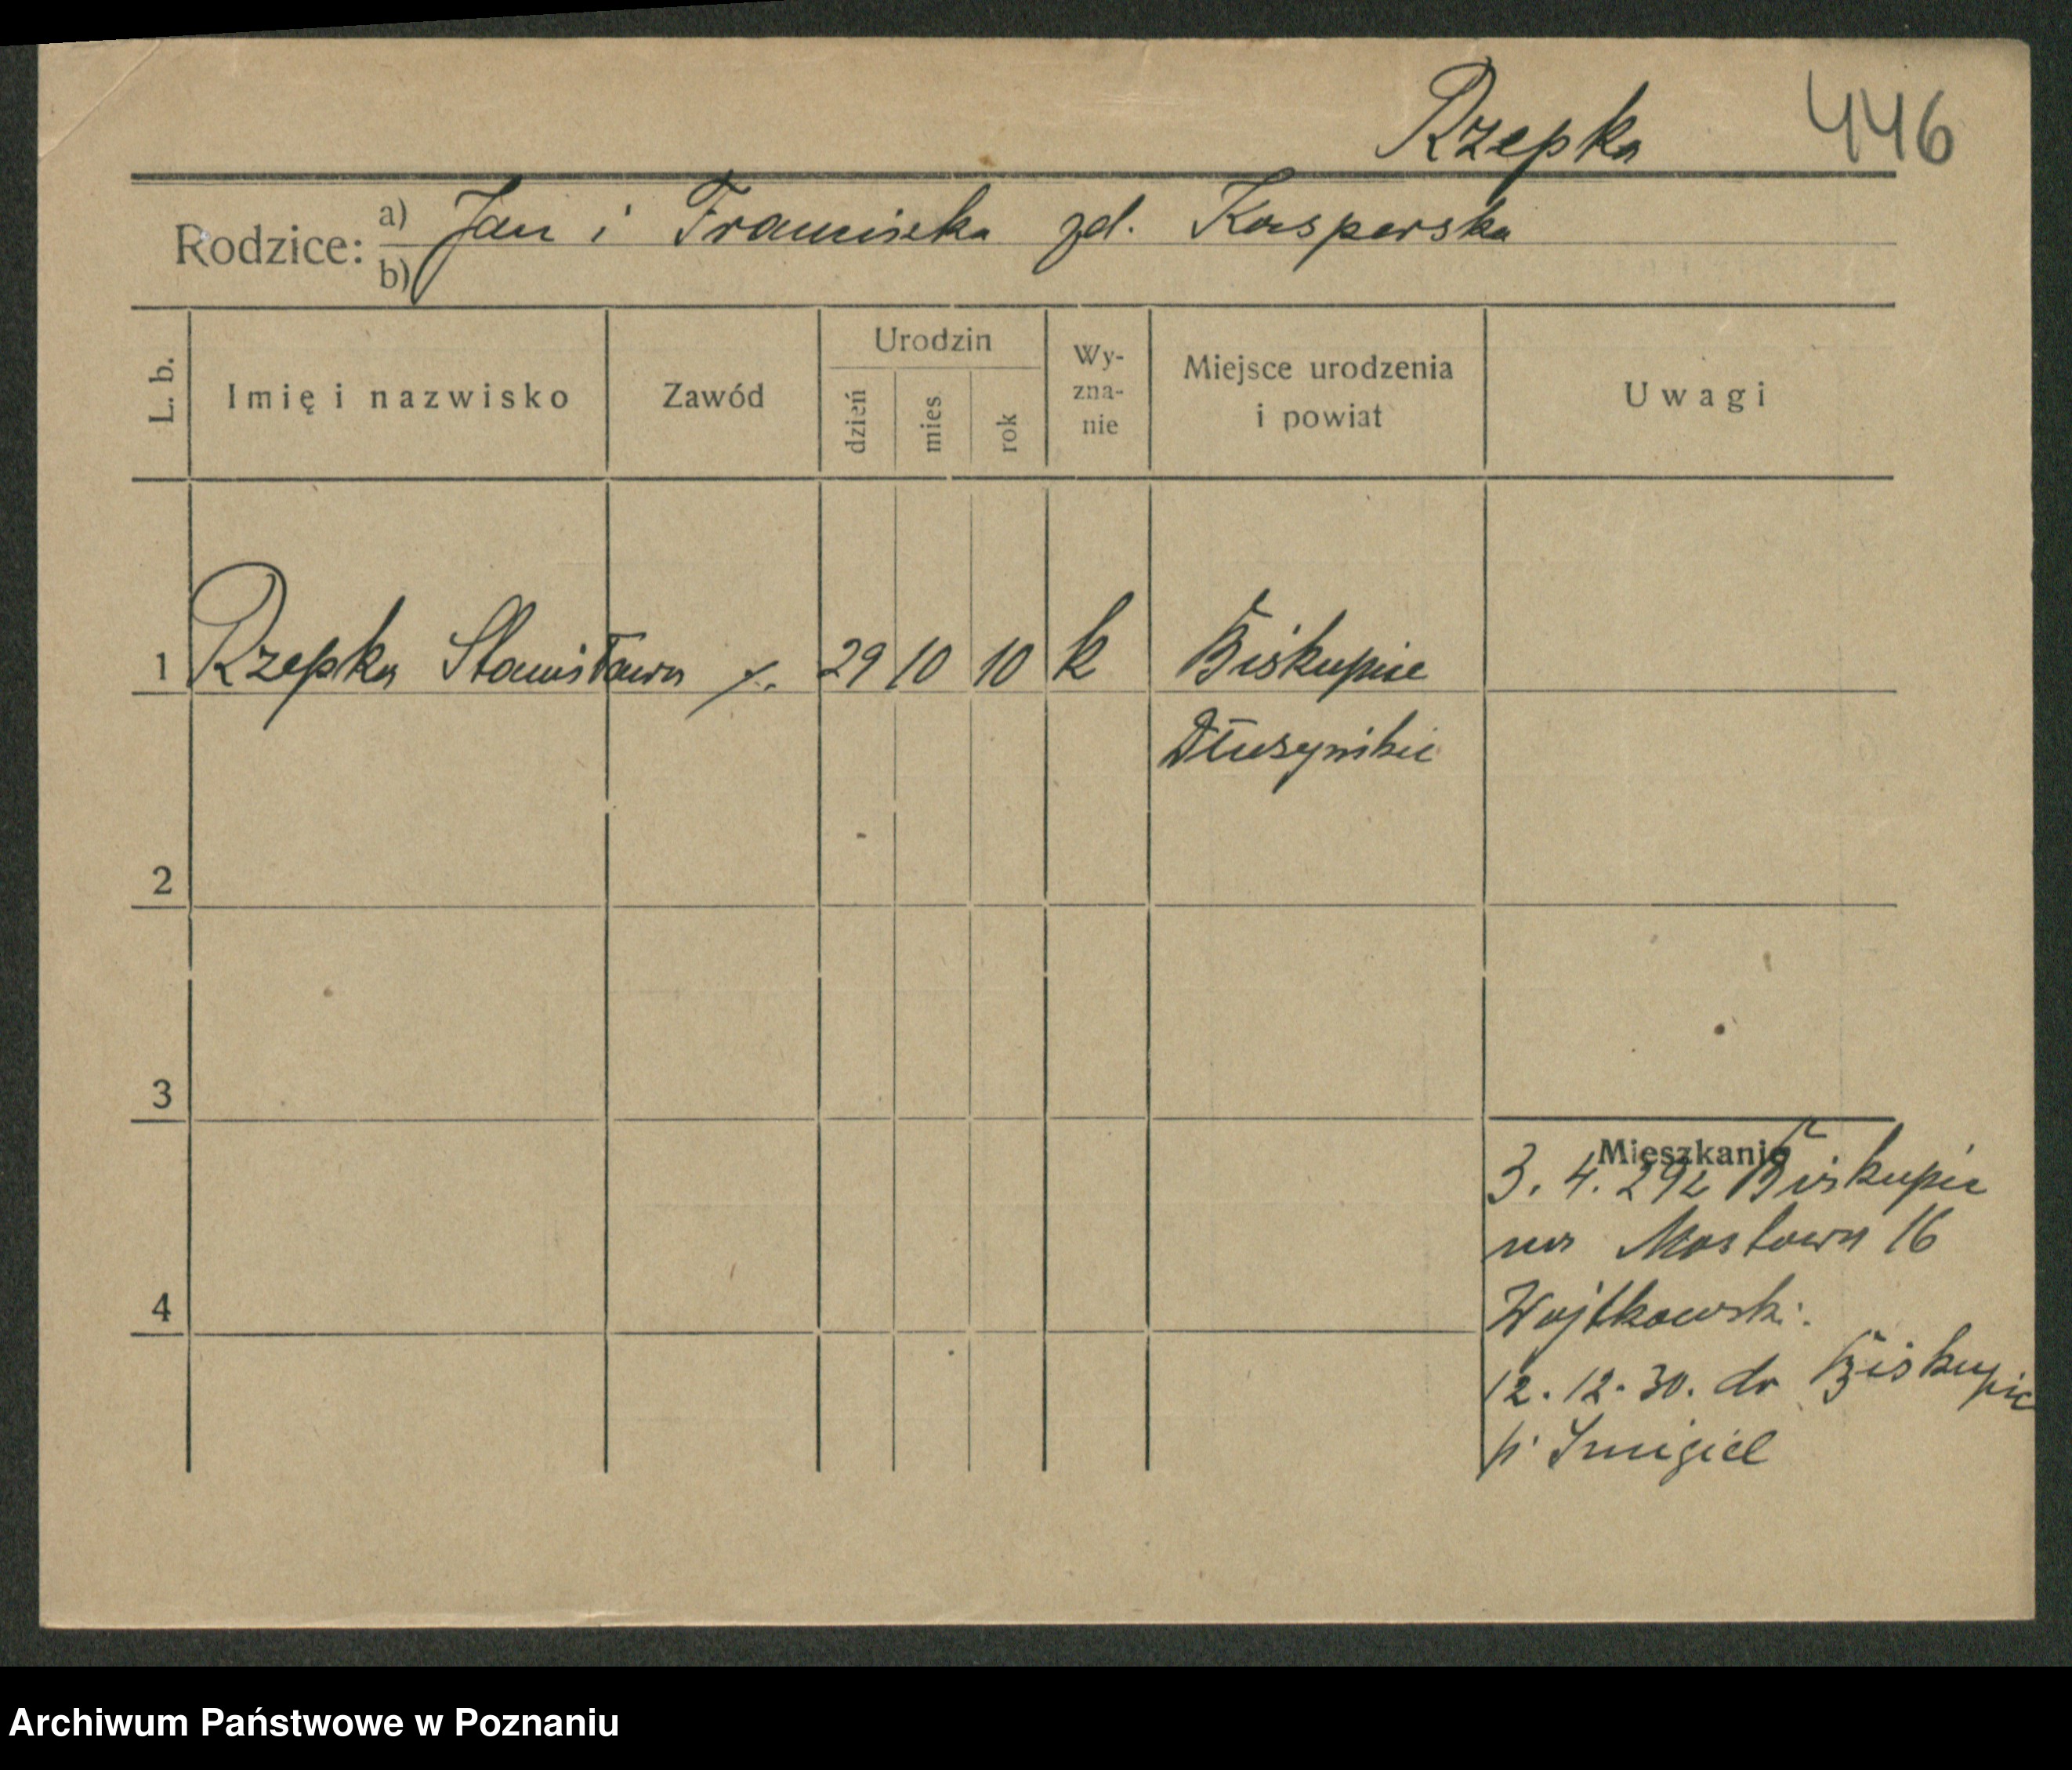 Rzepka 446
Rodzice: a) Jan i Franciszka zd. Kasperska
b)
L. b.
Imię i nazwisko
Zawód
Urodzin
dzień
mies.
rok
Wy-
zna-
nie
Miejsce urodzenia
i powiat
Uwagi
1 Rzepka Stanisława 29 10 10 k Biskupice
2
3
4
Mieszkanie
3. 4. 29 z Biskupic
na Mostowa 16
Wojtkowski.
12. 12. 30. do Biskupic
p. Śmigiel
Archiwum Państwowe w Poznaniu